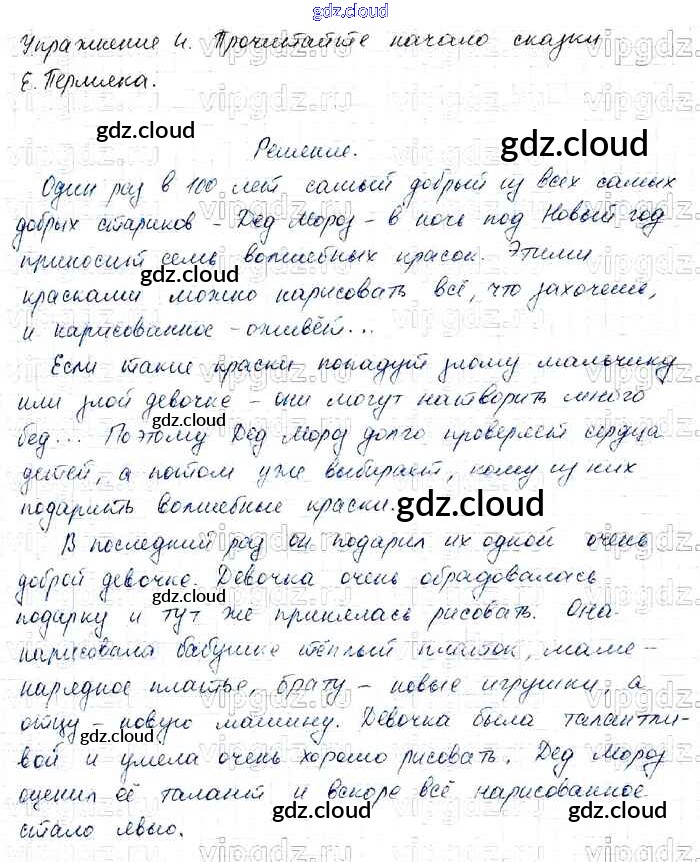 gdz.cloud
Упражнение 4. Прочитайте начало сказки
Е. Пермяка.
gdz.cloud
gdz.cloud
Решение.
Один раз в 100 лет самый добрый из всех самых
добрых стариков – Дед Мороз – в ночь под Новый год
приносит семь волшебных красок. Этими
gdz.cloud
красками можно нарисовать всё, что захочешь,
и нарисованное – оживёт...
Если такие краски попадут злому мальчику
или злой девочке – они могут натворить много
бед... Поэтому Дед Мороз долго проверяет сердца
детей, а потом уже выбирает, кому из них
подарить волшебные краски.
gdz.cloud
В последний раз он подарил их одной очень
доброй девочке. Девочка очень обрадовалась
gdz.cloud
подарку и тут же принялась рисовать. Она
нарисовала бабушке тёплый платок, маме –
нарядное платье, брату – новые игрушки, а
отцу – новую машину. Девочка была талантли-
gdz.cloud
вой и умела очень хорошо рисовать. Дед Мороз
оценил её талант и вскоре всё нарисованное
gdz.cloud
стало явью.